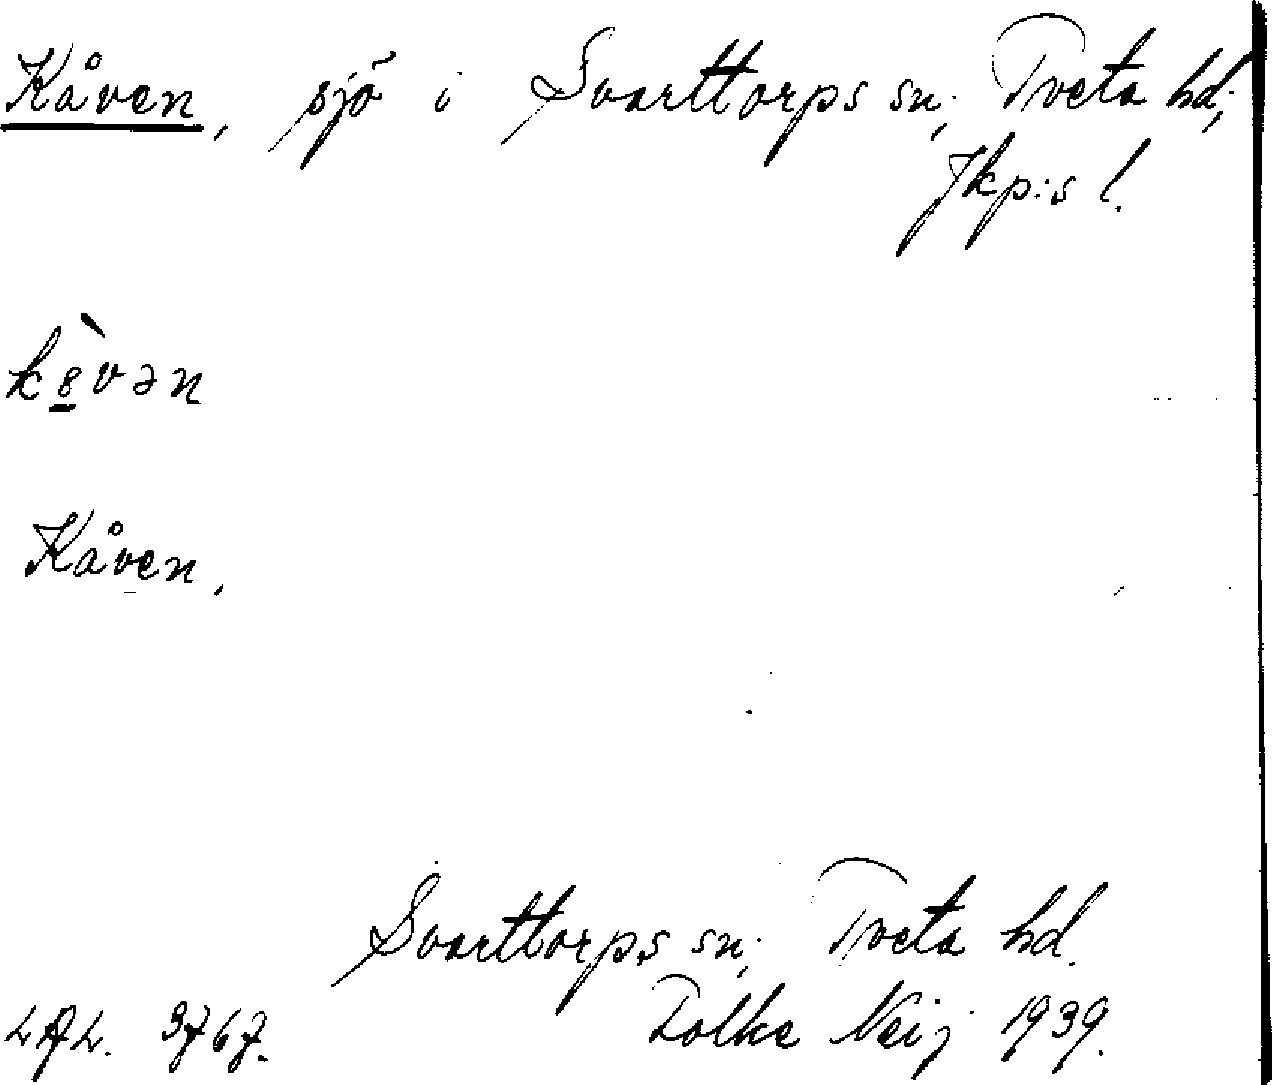 Kåven, sjö i Svarttorps sn, Tveta hd,
Jkp:s l.
k8̲̀vən
Kåven,
Svarttorps sn, Tveta hd.
LAL. 3767. Folke Neij 1939.